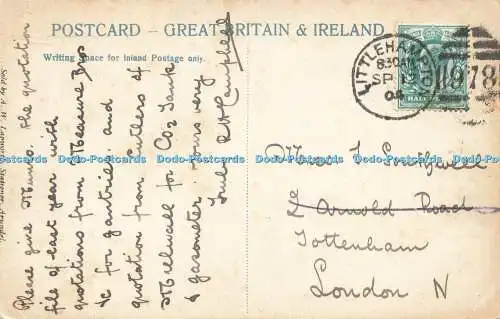 POSTCARD - GREAT BRITAIN & IRELAND
Writing Space for Inland Postage only.
Please give Munro the quotation
file of last year with
quotations from Measure Bros
&c for gantries and
quotation from Butlers of
Millwall for CO2 Tank
& gasometer. Yours very
truly
Campbell
LITTLEHAMPTON
8.30 AM
SP
04
978
HALF
Southwell
2 Arnold Road
Tottenham
London N
Sold by A. W.
Dodo-Postcards Dodo-Postcards Dodo-Postcards Dodo-Postcards Dodo-Postcards Dodo-Postcards